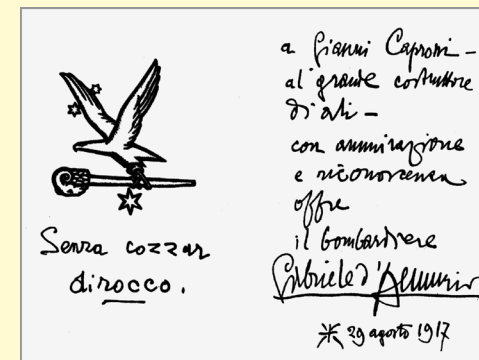 Senza cozzar
dirocco.
a Gianni Caproni –
al grande costruttore
d'ali –
con ammirazione
e riconoscenza
offre
il bombardiere
Gabriele d'Annunzio
29 agosto 1917